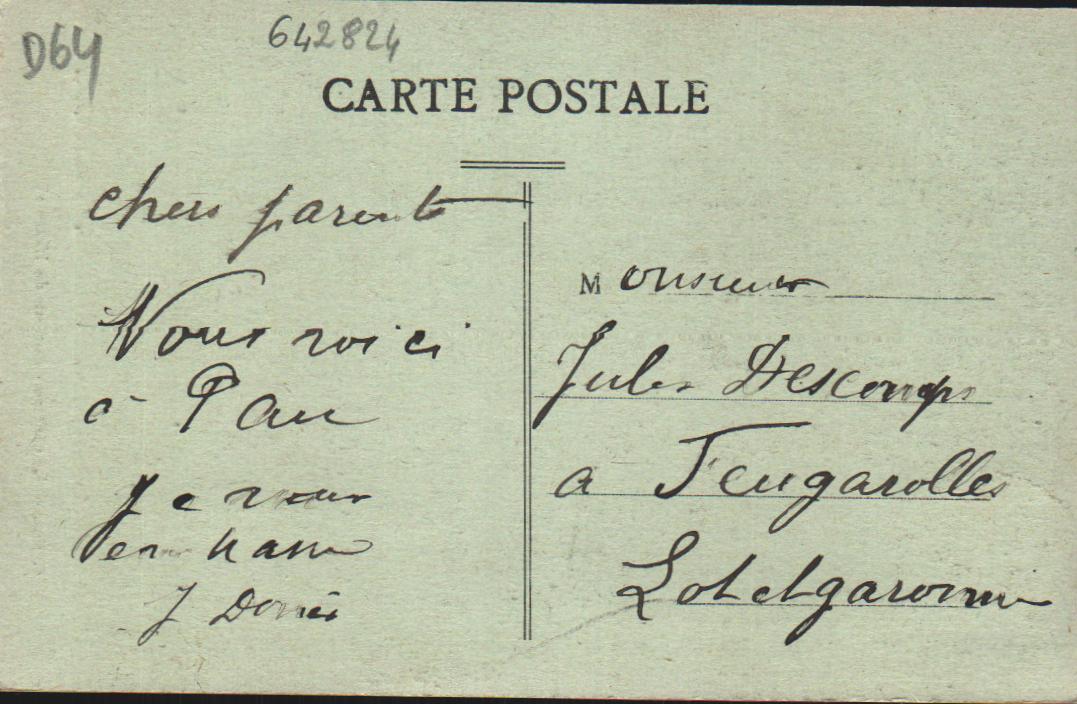 D64
642824
CARTE POSTALE
chers parents
Nous voici
à Pau
Je vous
embrasse
J
Monsieur
Jules Descomps
a Feugarolles
Lot et garonne